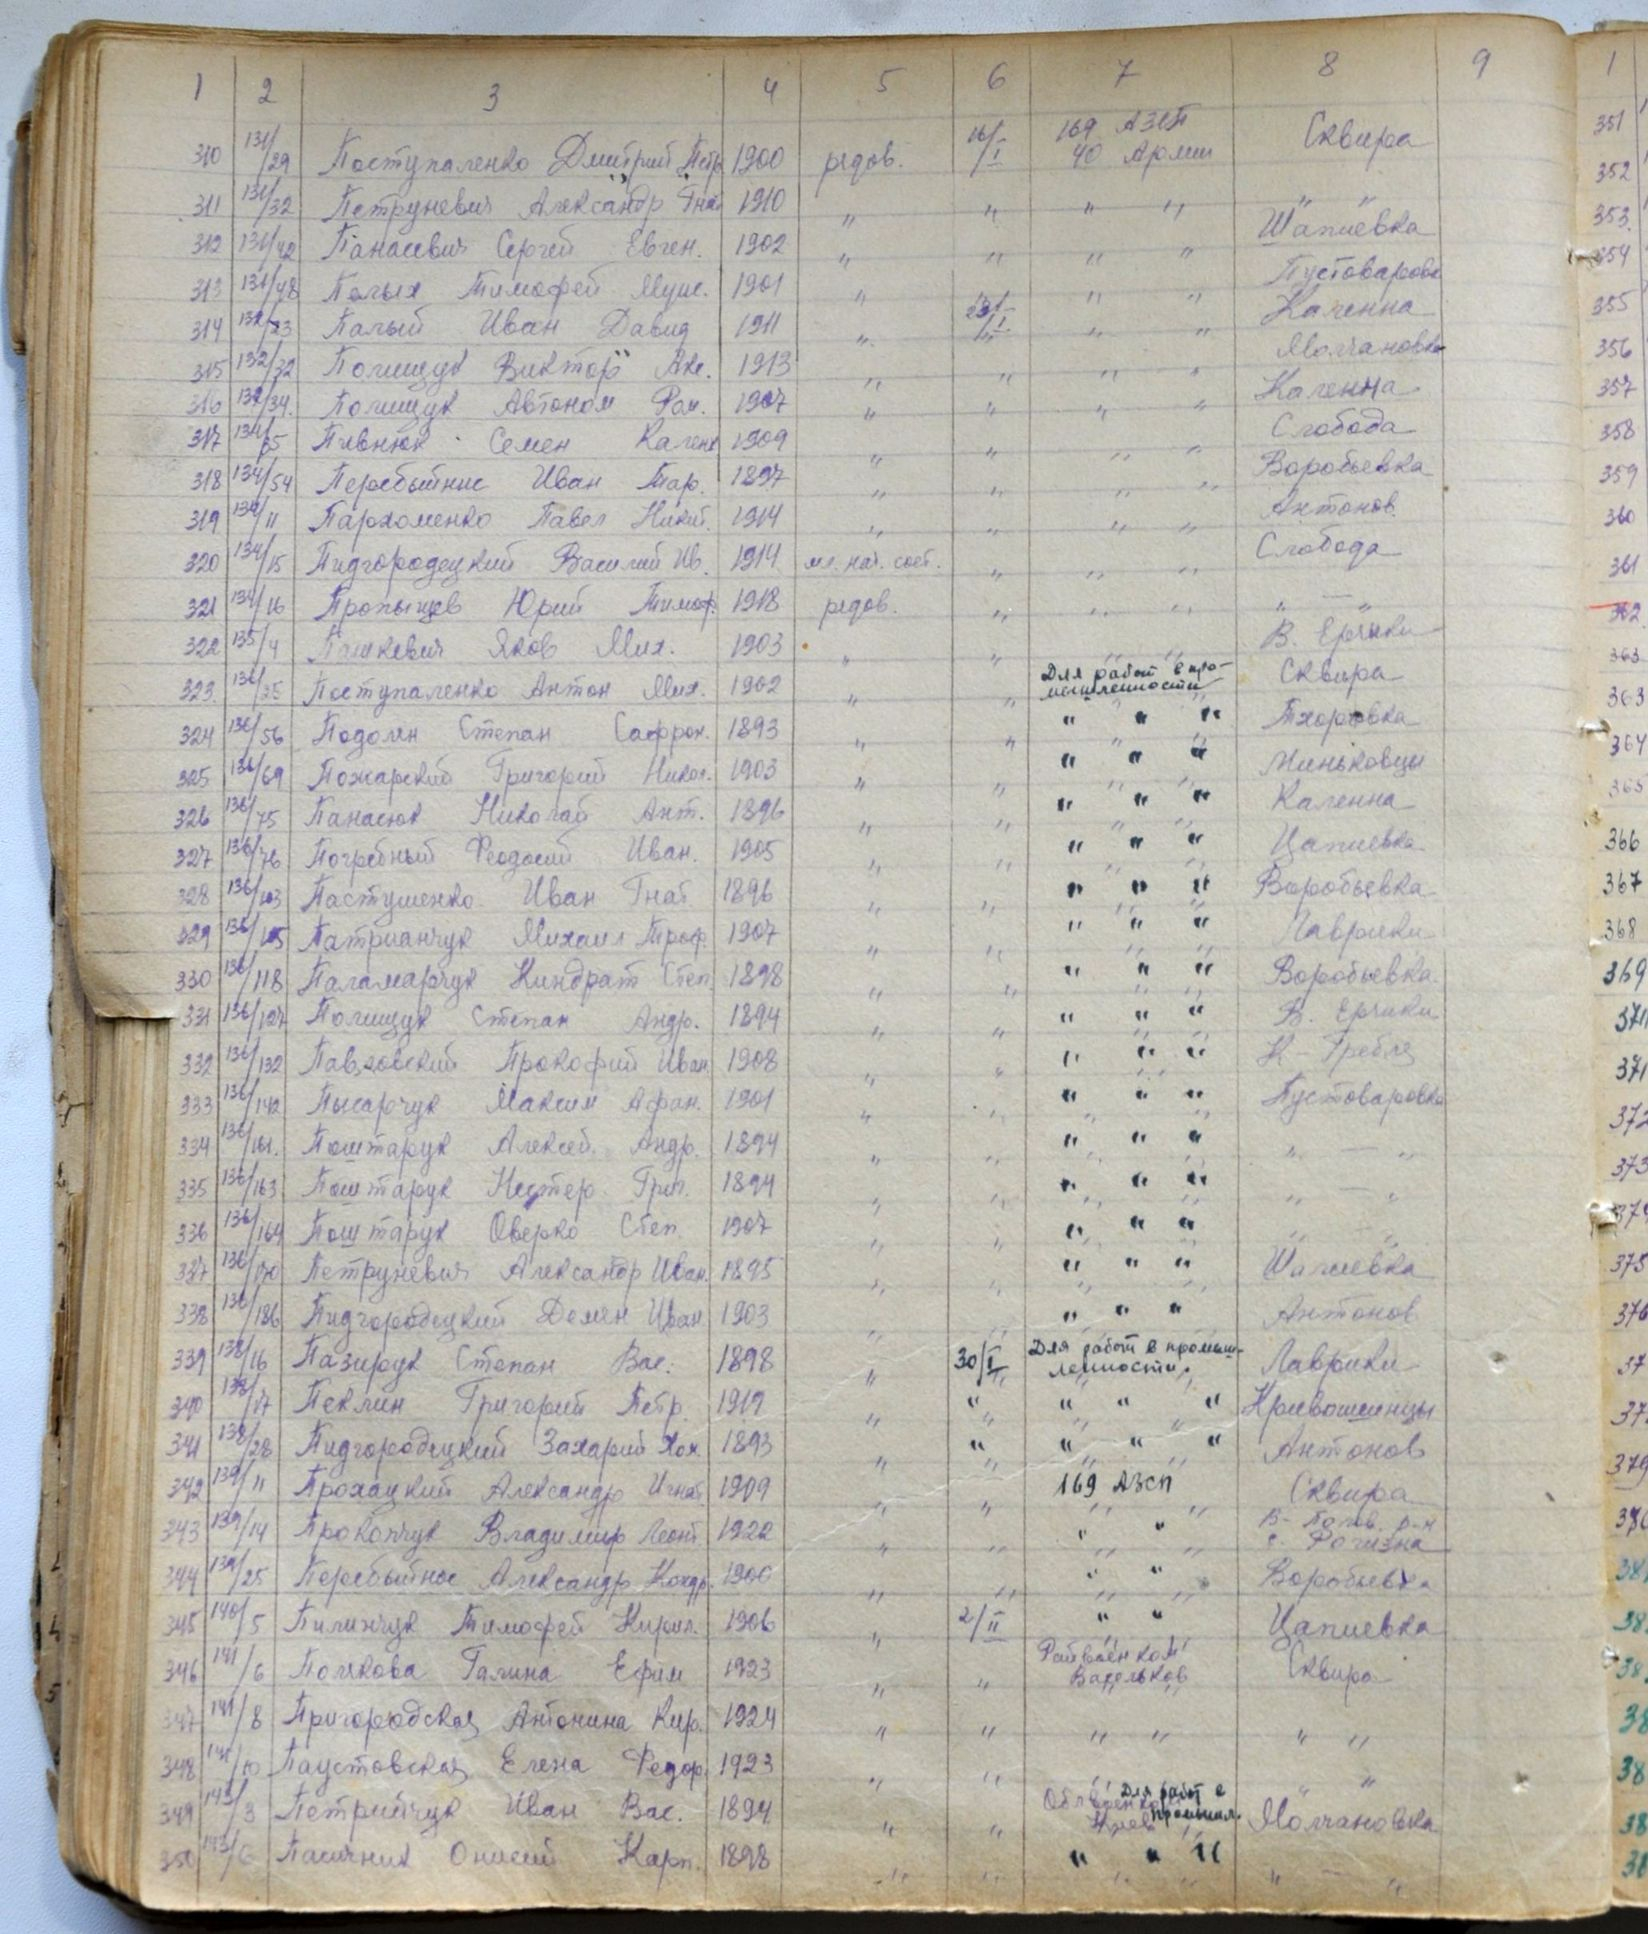 1 2 3 4 5 6 7 8 9
310 131/29 Поступаленко Дмитрий Петр 1900 рядов. 16/I 169 АЗСП 40 Армии Сквира
311 131/32 Петруневич Александр Гнат 1910 " " " " " "
312 131/42 Панасевич Сергей Евген. 1902 " " " " Шапиевка
313 131/48 Палых Тимофей Мусе. 1901 " " " " Пустоваровка
314 132/23 Палый Иван Давид 1911 " 23/I " " Каленна
315 132/32 Полищук Виктор Акс. 1913 " " " " Молчановка
316 132/34. Полищук Автоном Ром. 1907 " " " " Каленна
317 134/35 Пивнюк Семен Калени 1909 " " " " Слобода
318 134/54 Перебыйнис Иван Мар. 1897 " " " " Воробьевка
319 134/11 Пархоменко Павел Никит. 1914 " " " " Антонов
320 134/15 Пидгородецкий Василий Ив. 1914 мл. нач. сост. " " " Слобода
321 134/16 Пропыщев Юрий Тимоф. 1918 рядов. " " " " — "
322 135/4 Пашкевич Яков Мих. 1903 " " " " В. Ерчики
323. 136/35 Поступаленко Антон Мих. 1902 " " Для работ в про-мышленности Сквира
324 136/56 Подолян Степан Сафрон. 1893 " " " " " Тхоровка
325 136/69 Пожарский Григорий Никол. 1903 " " " " " Миньковцы
326 136/75 Панасюк Николай Ант. 1896 " " " " " Каленна
327 136/76 Погребный Феодосий Иван. 1905 " " " " " Цапиевка
328 136/103 Пастушенко Иван Гнат. 1896 " " " " " Воробьевка
329 136/105 Патрианчук Михаил Троф. 1907 " " " " " Лаврики
330 136/118 Паламарчук Киндрат Степ. 1898 " " " " " Воробьевка.
331 136/127 Полищук Степан Андр. 1894 " " " " " В. Ерчики
332 136/132 Павловский Прокофий Иван. 1908 " " " " " К-Гребля
333 136/142 Пысарчук Максим Афан. 1901 " " " " " Пустоваровка
334 136/161. Поштарук Алексей Андр. 1894 " " " " " " — "
335 136/163 Поштарук Нестер Григ. 1894 " " " " " " — "
336 136/164 Поштарук Оверко Степ 1907 " " " " " " — "
337 136/170 Петруневич Александр Иван. 1895 " " " " " Шапиевка
338 136/186 Пидгородецкий Демян Иван 1903 " " " " " Антонов
339 138/16 Пазирук Степан Вас. 1898 " 30/I Для работ в промыш-ленности. Лаврики
340 138/17 Пеклин Григорий Петр. 1917 " " " " " Кривошеинцы
341 138/28 Пидгородецкий Захарий Хом. 1893 " " " " " Антонов
342 139/11 Прохацкий Александр Игнат. 1909 " " 169 АЗСП Сквира
343 139/14 Прокопчук Владимир Леонт. 1922 " " " " В-Полов. р-н с. Рогизна
344 139/25 Перебыйнос Александр Кондр. 1900 " " " " Воробьевка
345 140/5 Пилинчук Тимофей Кирил. 1906 " 2/II " " Цапиевка
346 141/6 Полякова Галина Ефим 1923 " " Райвоенком Васильков Сквира
347 141/8 Пригородская Антонина Кир. 1924 " " " " " "
348 141/10 Паустовская Елена Федор. 1923 " " " "
349 143/3 Петрийчук Иван Вас. 1894 " " Для работ в промышл. Молчановка
350 143/6 Пасичник Онисий Карп. 1898 " " " " " " — "
1
351
352
353.
354
355
356
357
358
359
360
361
362.
363
363
364
365
366
367
368
369
371
372
373
374
375
376
37
37
379